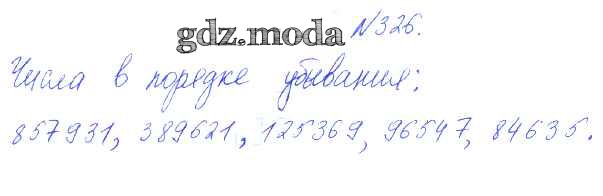 gdz.moda №326.
Числа в порядке убывания:
857931, 389621, 125369, 96547, 84635.